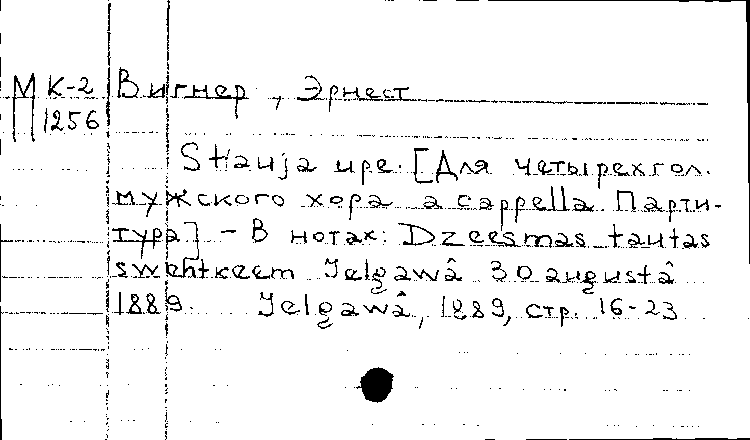 М К-2 Вигнер, Эрнест
1256
Stŧauja upe. [Для четырехгол.
мужского хора a cappella. Парти-
тура] – В нотах: Dzeesmas tautas
swehtkeem Jelgawâ 30 augustâ
1889. Jelgawâ, 1889, стр. 16-23